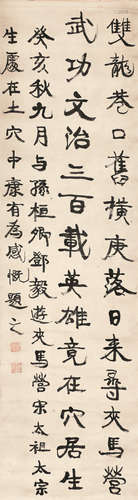 雙龍巷口舊橫庚落日來尋夾馬營
武功文治三百載英雄竟在穴居生
癸亥秋九月与孫桓卿鄧毅遊夾馬營宋太祖太宗
生處在土穴中康有為感慨題之